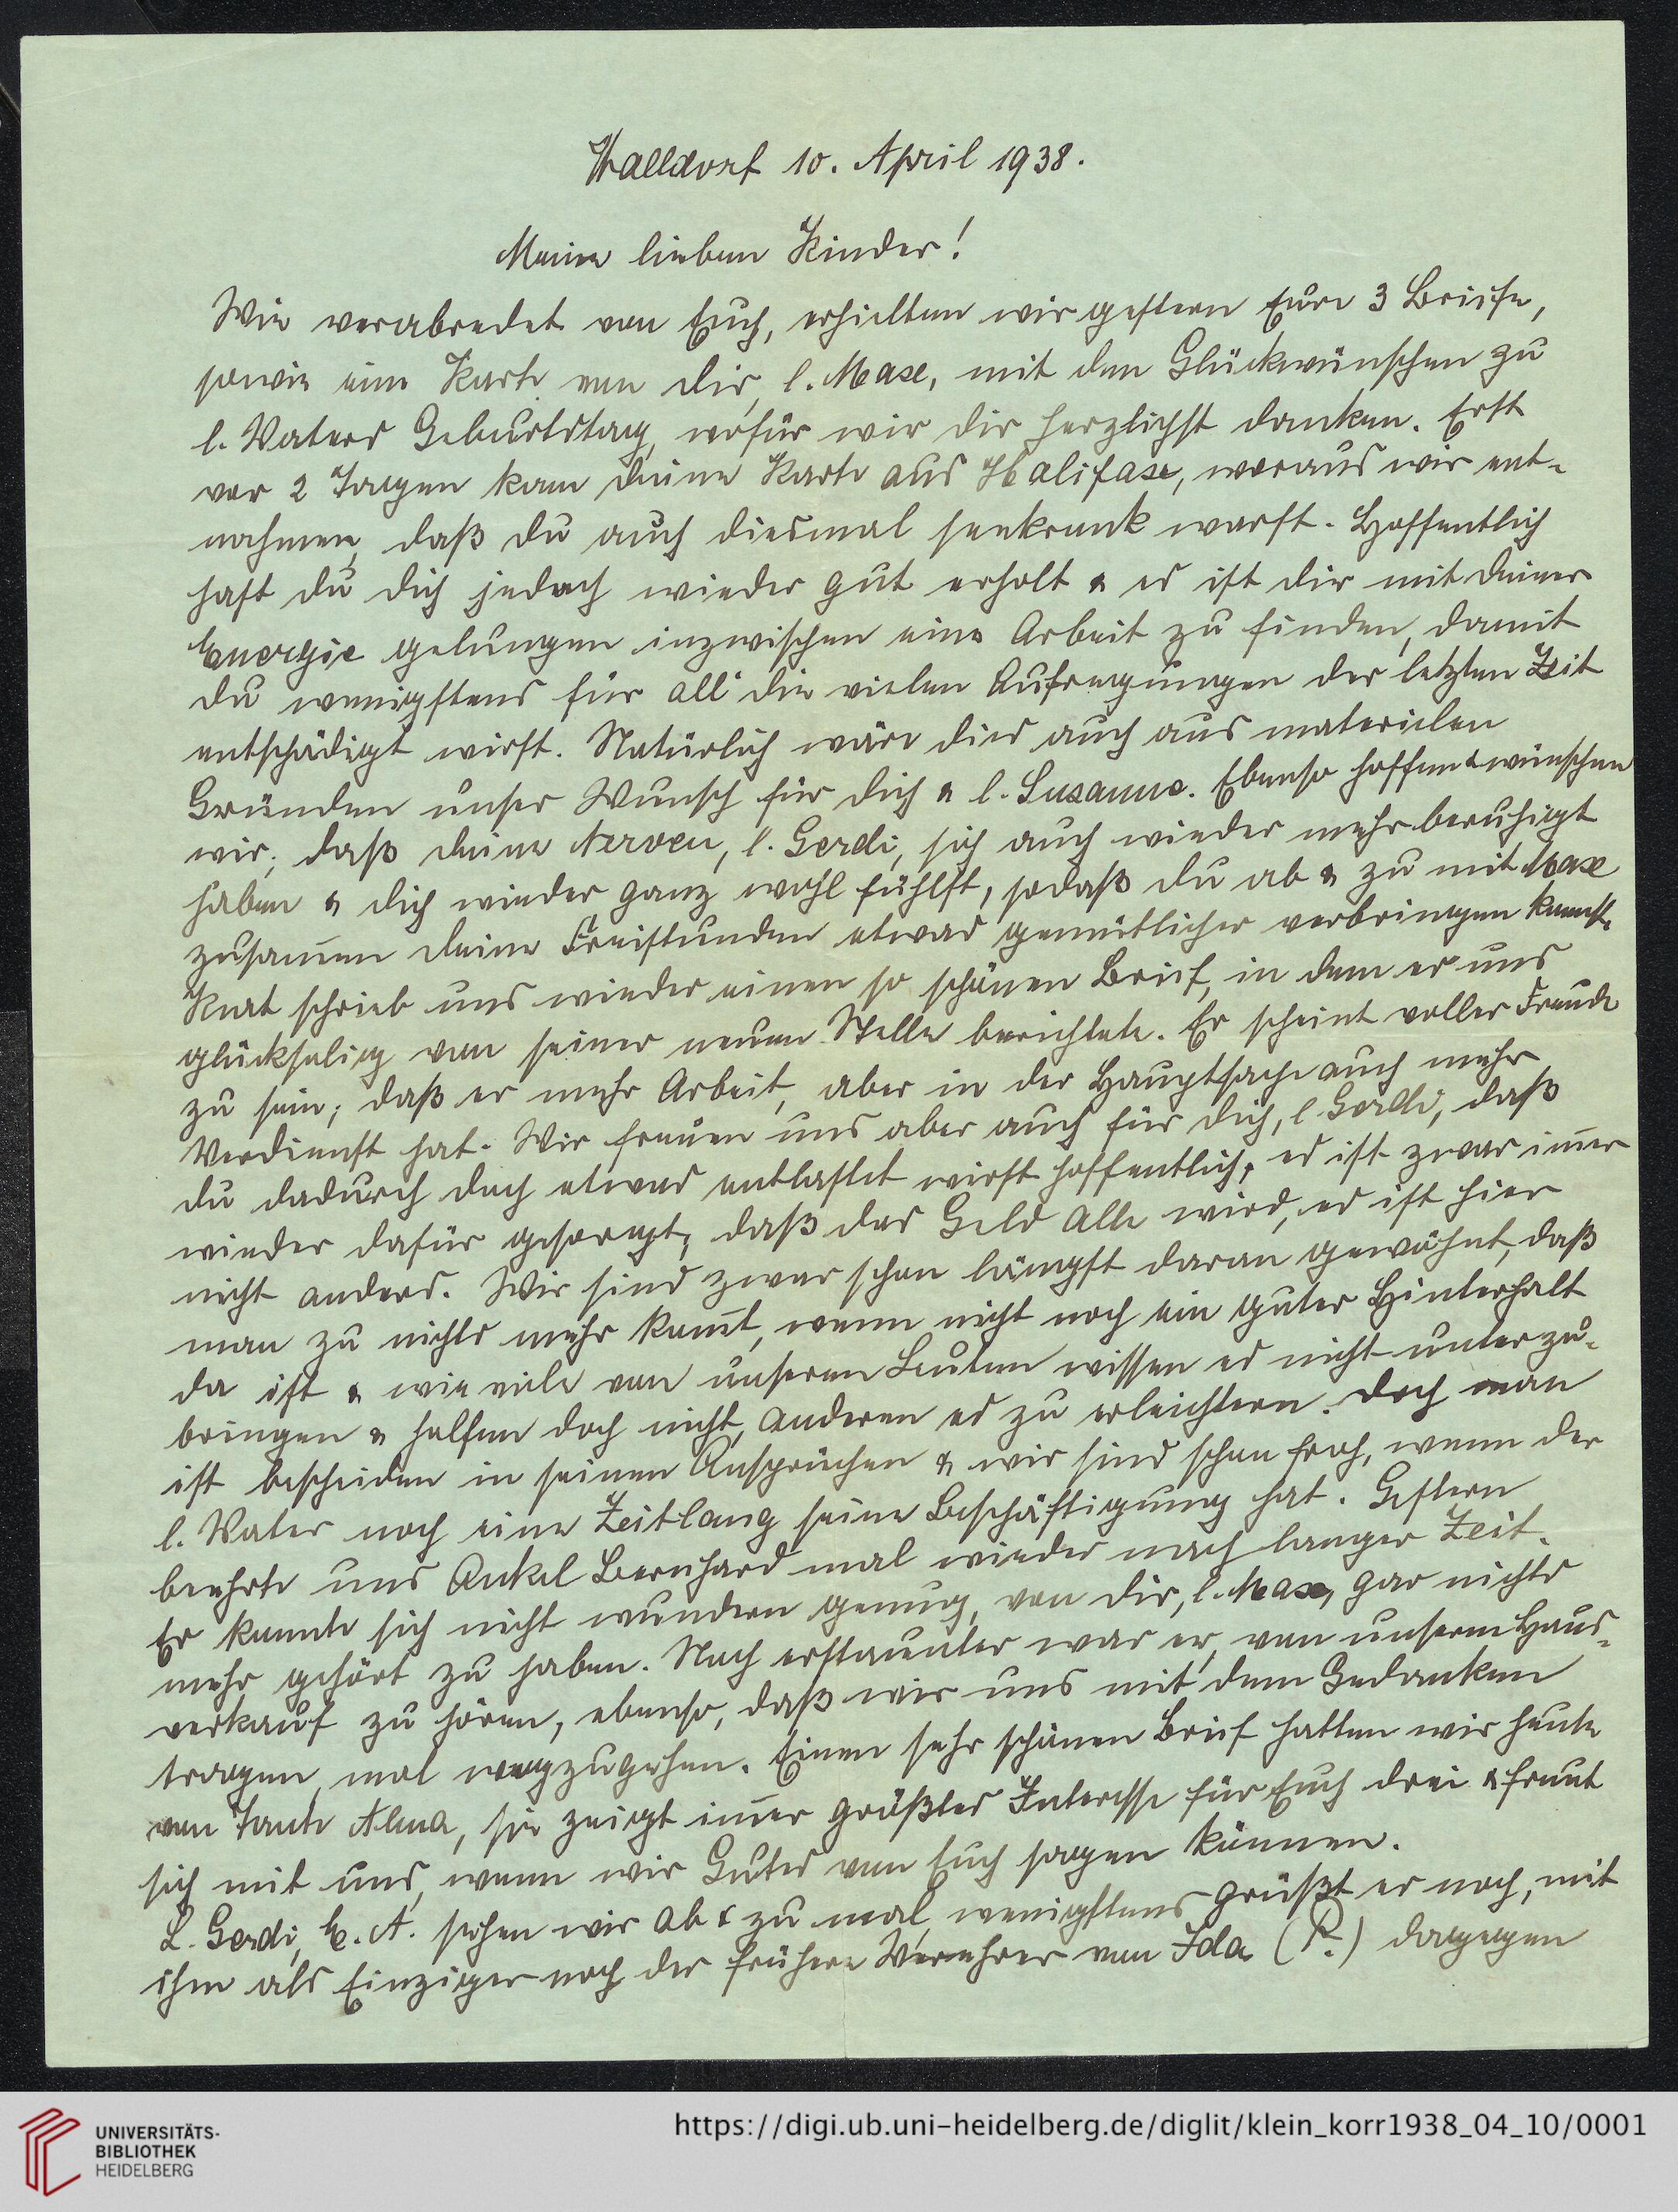 Walldorf 10. April 1938.
Meine lieben Kinder!
Wie verabredet von Euch, erhielten wir gestern Eure 3 Briefe,
sowie eine Karte von dir, l. Max, mit den Glückwünschen zu
l. Vaters Geburtstag, wofür wir dir herzlichst danken. Erst
vor 2 Tagen kam deine Karte aus Halifax, woraus wir ent-
nahmen, daß du auch diesmal seekrank warst. Hoffentlich
hast du dich jedoch wieder gut erholt & es ist dir mit deiner
Energie gelungen inzwischen eine Arbeit zu finden, damit
du wenigstens für all' die vielen Aufregungen der letzten Zeit
entschädigt wirst. Natürlich wäre dies auch aus materielen
Gründen unser Wunsch für dich & l. Susanne. Ebenso hoffen & wünschen
wir, daß deine Nerven, l. Gerdi, sich auch wieder mehr beruhigt
haben & dich wieder ganz wohl fühlst, sodaß du ab & zu mit Max
zusam̄en deine Freistunden etwas gemütlicher verbringen kannst.
Kurt schrieb uns wieder einen so schönen Brief, in dem er uns
glückselig von seiner neuen Stelle berichtete. Er scheint voller Freude
zu sein, daß er mehr Arbeit, aber in der Hauptsache auch mehr
Verdienst hat. Wir freuen uns aber auch für dich, l. Gerdi, daß
du dadurch doch etwas entlastet wirst hoffentlich, es ist zwar im̄er
wieder dafür gesorgt, daß das Geld alle wird, es ist hier
nicht anders. Wir sind zwar schon längst daran gewöhnt, daß
man zu nichts mehr kom̄t, wenn nicht noch ein guter Hinterhalt
da ist & wie viele von unseren Leuten wissen es nicht unterzu-
bringen & helfen doch nicht, anderen es zu erleichtern. Doch man
ist bescheiden in seinen Ansprüchen & wir sind schon froh, wenn der
l. Vater noch eine Zeitlang seine Beschäftigung hat. Gestern
beehrte uns Onkel Bernhard mal wieder nach langer Zeit.
Er konnte sich nicht wundern genug, von dir, l. Max, gar nichts
mehr gehört zu haben. Noch erstaunter war er, von unserem Haus-
verkauf zu hören, ebenso, daß wir uns mit dem Gedanken
tragen, mal wegzugehen. Einen sehr schönen Brief hatten wir heute
von Tante Alma, sie zeigt im̄er größtes Interesse für Euch drei & freut
sich mit uns, wenn wir Gutes von Euch sagen können.
L. Gerdi, E. A. sehen wir ab & zu mal, wenigstens grüßt er noch, mit
ihm als Einziger noch der frühere Verehrer von Ida (P.) dagegen
UNIVERSITÄTS-
BIBLIOTHEK
HEIDELBERG
https://digi.ub.uni-heidelberg.de/diglit/klein_korr1938_04_10/0001